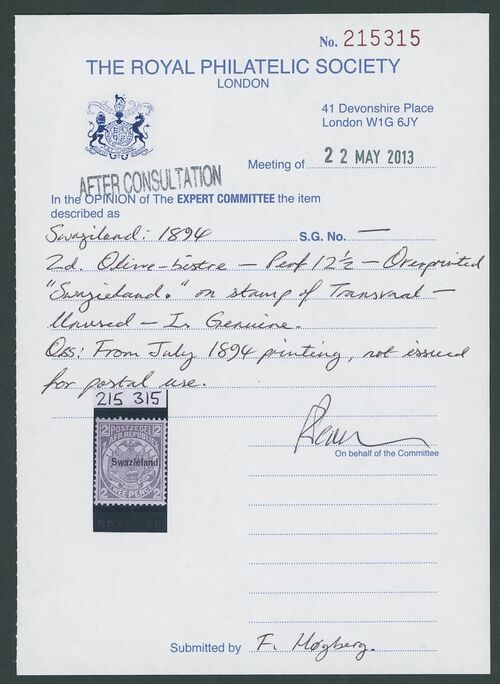 No. 215315
THE ROYAL PHILATELIC SOCIETY
LONDON
41 Devonshire Place
London W1G 6JY
Meeting of 22 MAY 2013
AFTER CONSULTATION
In the OPINION of The EXPERT COMMITTEE the item
described as
Swaziland: 1894 S.G. No. —
2d. Olive-bistre — Perf 12½ — Overprinted
"Swazieland." on stamp of Transvaal —
Unused — Is Genuine.
Obs: From July 1894 printing, not issued
for postal use.
215 315
2 POSTZEGEL 2
AFR REPUBLIEK
Swazieland
2 TWEE PENCE 2
On behalf of the Committee
Submitted by F. Høgberg.